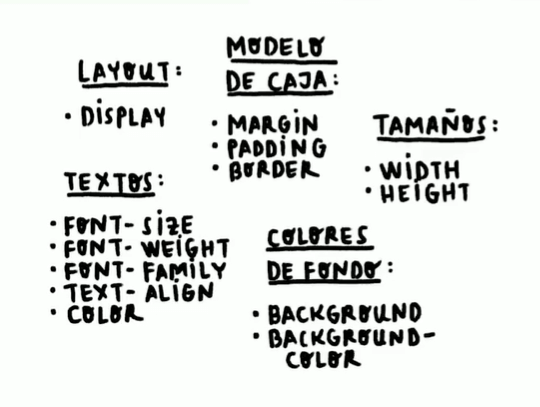 LAYOUT:
• DISPLAY
MODELO
DE CAJA:
• MARGIN
• PADDING
• BORDER
TAMAÑOS:
• WIDTH
• HEIGHT
TEXTOS:
• FONT-SIZE
• FONT-WEIGHT
• FONT-FAMILY
• TEXT-ALIGN
• COLOR
COLORES
DE FONDO:
• BACKGROUND
• BACKGROUND-
COLOR